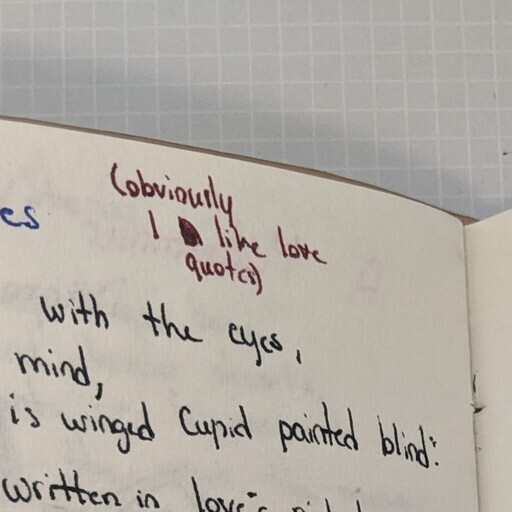 (obviously
I like love
quotes)
es
with the eyes,
mind,
is winged Cupid painted blind:
written in love's